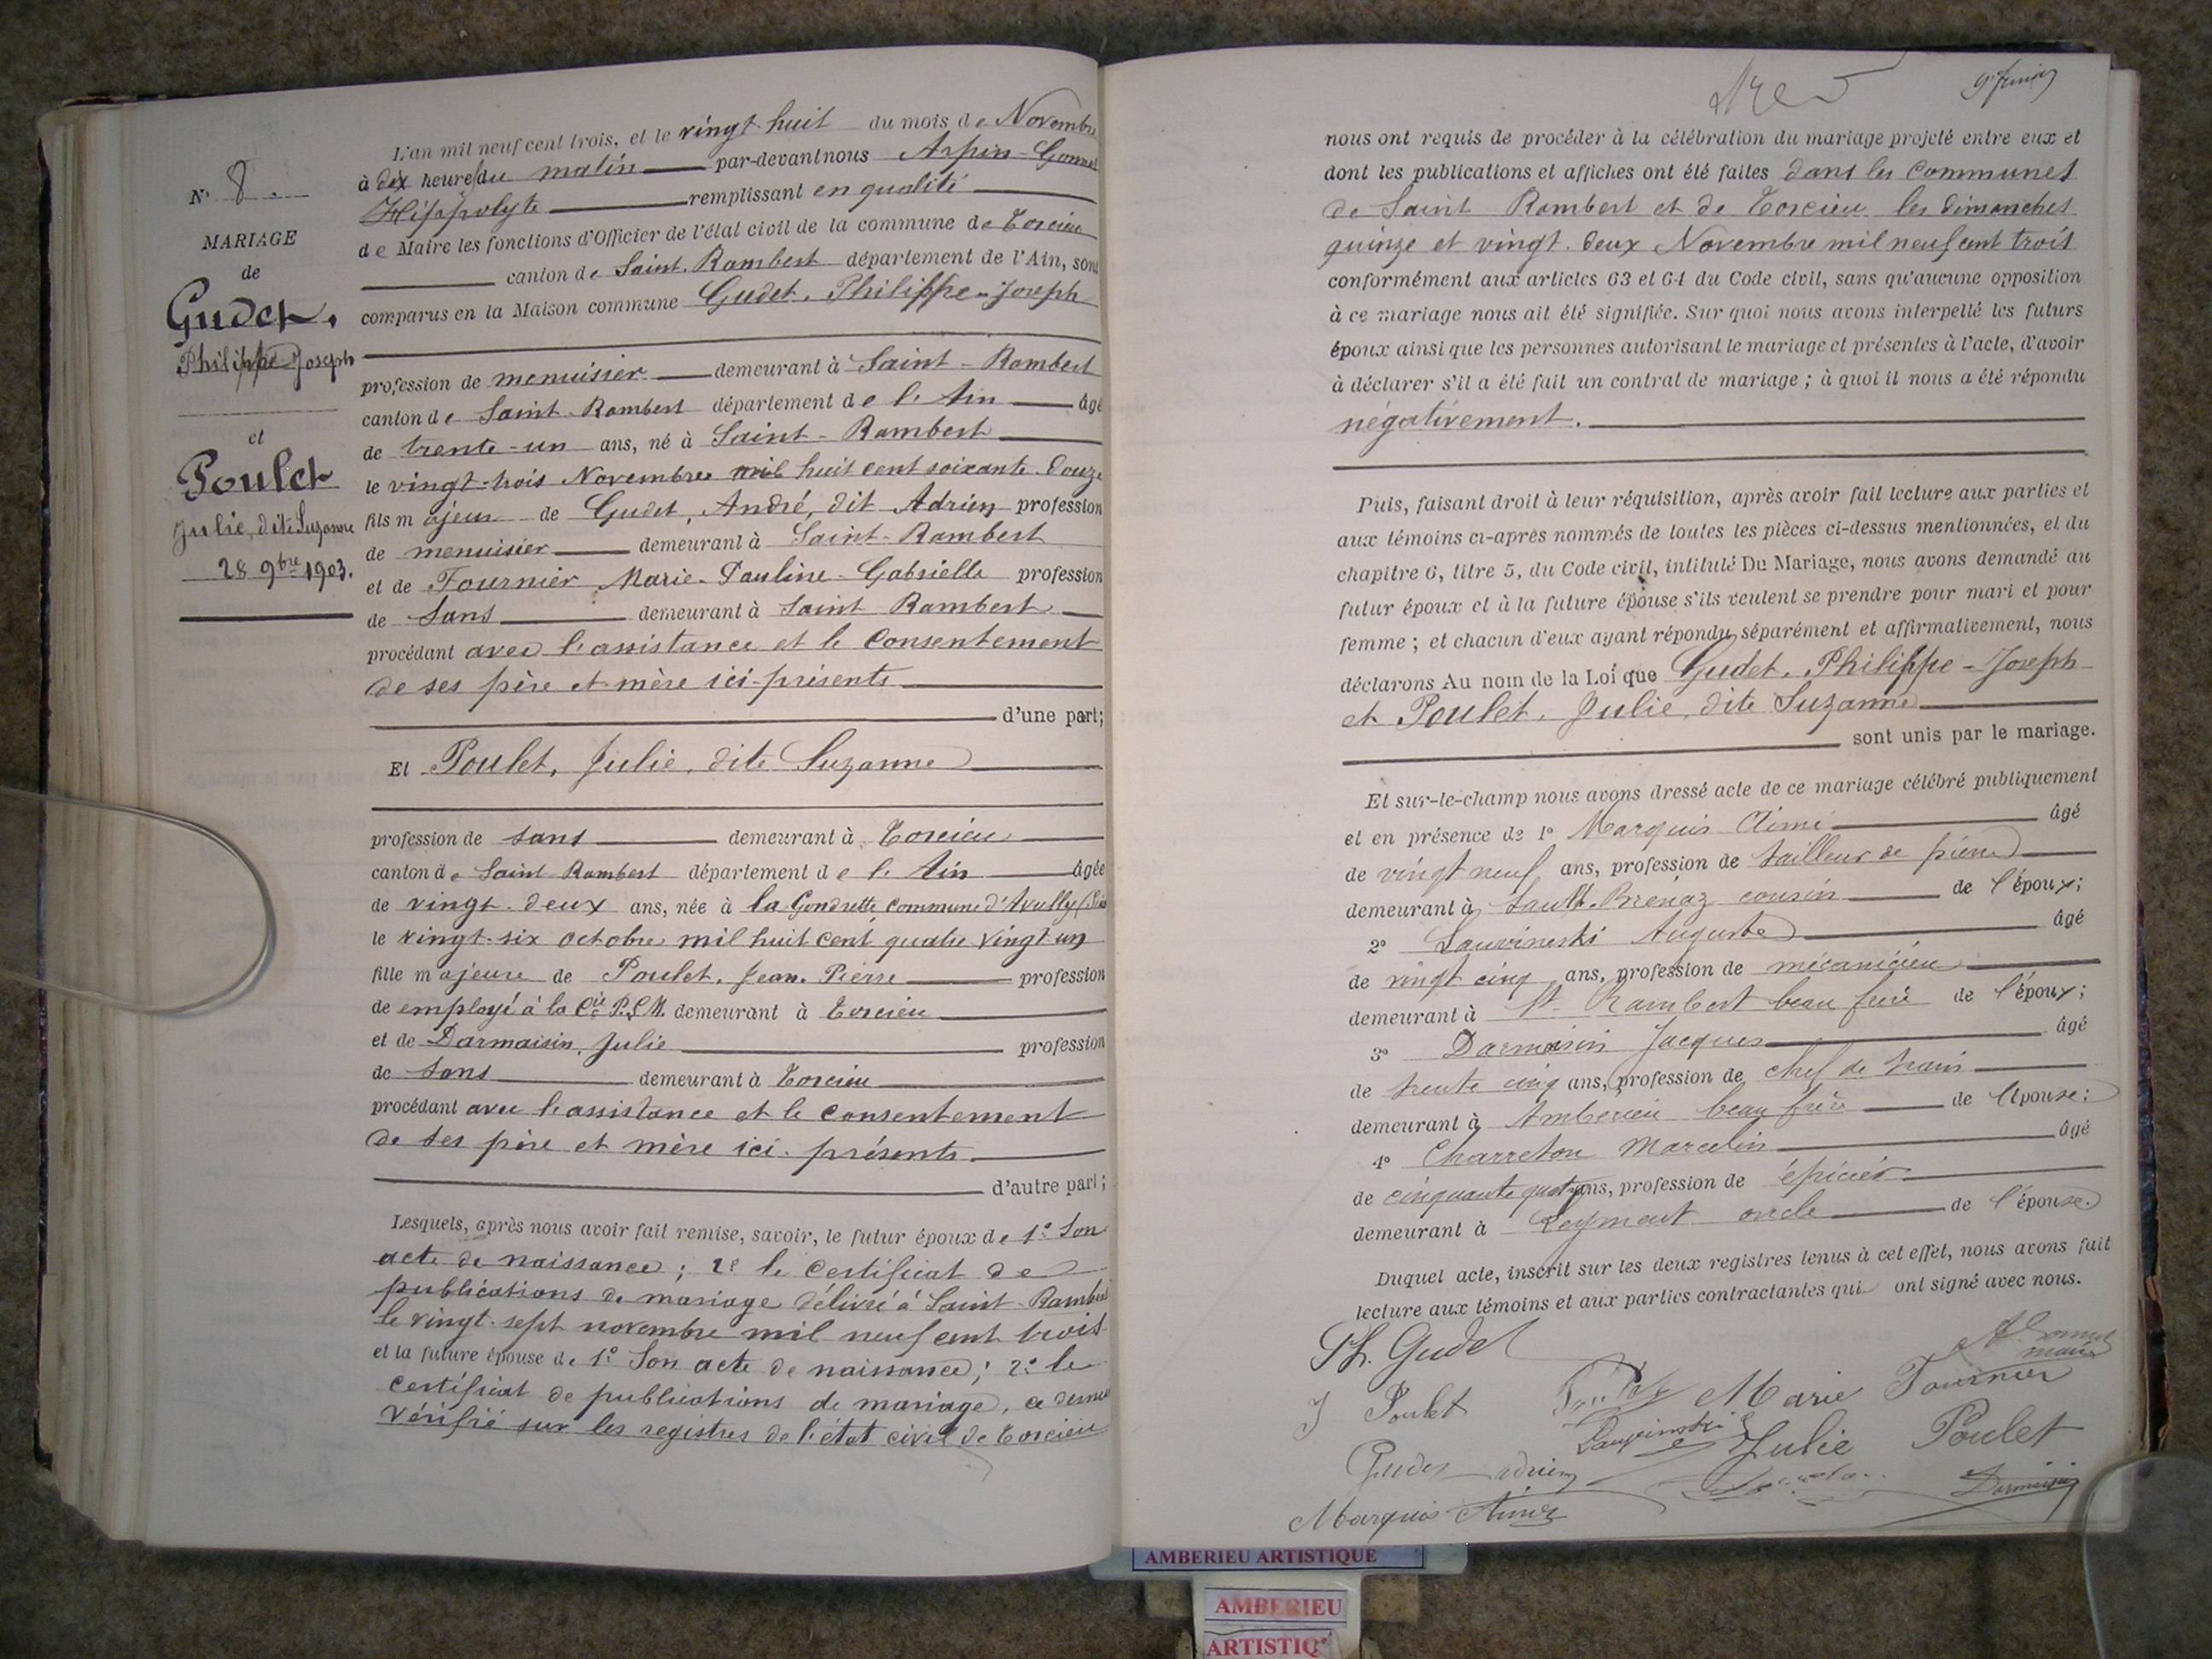 N° 8.
MARIAGE
de
Gudet,
Philippe-Joseph
et
Poulet
Julie, dite Suzanne
28 9bre 1903.
L'an mil neuf cent trois, et le vingt-huit du mois de Novembre
à dix heures du matin par-devant nous Arpin-Gonnet
Hippolyte remplissant en qualité
de Maire les fonctions d'Officier de l'état civil de la commune de Torcieu
canton de Saint-Rambert département de l'Ain, sont
comparus en la Maison commune Gudet, Philippe-Joseph
profession de menuisier demeurant à Saint-Rambert
canton de Saint-Rambert département de l'Ain âgé
de trente-un ans, né à Saint-Rambert
le vingt-trois Novembre mil huit cent soixante-douze
fils majeur de Gudet, André, dit Adrien profession
de menuisier demeurant à Saint-Rambert
et de Fournier Marie-Pauline-Gabrielle profession
de sans demeurant à Saint Rambert
procédant avec l'assistance et le consentement
de ses père et mère ici-présents
d'une part;
Et Poulet, Julie, dite Suzanne
profession de sans demeurant à Torcieu
canton de Saint-Rambert département de l'Ain âgée
de vingt-deux ans, née à la Gondrette commune d'Avully
le vingt-six octobre mil huit cent quatre vingt un
fille majeure de Poulet, Jean-Pierre profession
de employé à la Cie P.L.M. demeurant à Torcieu
et de Darmaisin, Julie profession
de sans demeurant à Torcieu
procédant avec l'assistance et le consentement
de ses père et mère ici-présents
d'autre part;
Lesquels, après nous avoir fait remise, savoir, le futur époux de 1° Son
acte de naissance; 2° le certificat de
publications de mariage délivré à Saint-Rambert
le vingt-sept novembre mil neuf cent trois
et la future épouse de 1° Son acte de naissance; 2° le
certificat de publications de mariage, ce dernier
vérifié sur les registres de l'état civil de Torcieu
nous ont requis de procéder à la célébration du mariage projeté entre eux et
dont les publications et affiches ont été faites dans les communes
de Saint Rambert et de Torcieu les dimanches
quinze et vingt-deux Novembre mil neuf cent trois
conformément aux articles 63 et 64 du Code civil, sans qu'aucune opposition
à ce mariage nous ait été signifiée. Sur quoi nous avons interpellé les futurs
époux ainsi que les personnes autorisant le mariage et présentes à l'acte, d'avoir
à déclarer s'il a été fait un contrat de mariage; à quoi il nous a été répondu
négativement.
Puis, faisant droit à leur réquisition, après avoir fait lecture aux parties et
aux témoins ci-après nommés de toutes les pièces ci-dessus mentionnées, et du
chapitre 6, titre 5, du Code civil, intitulé Du Mariage, nous avons demandé au
futur époux et à la future épouse s'ils veulent se prendre pour mari et pour
femme; et chacun d'eux ayant répondu séparément et affirmativement, nous
déclarons Au nom de la Loi que Gudet, Philippe-Joseph
et Poulet, Julie, dite Suzanne
sont unis par le mariage.
Et sur-le-champ nous avons dressé acte de ce mariage célébré publiquement
et en présence de 1° Marquis Aimé âgé
de vingt neuf ans, profession de tailleur de pierre
demeurant à Sault-Brénaz cousin de l'époux;
2° Lauvinerski Auguste âgé
de vingt cinq ans, profession de mécanicien
demeurant à St Rambert beau frère de l'époux;
3° Darmaisin Jacques âgé
de trente cinq ans, profession de chef de train
demeurant à Ambérieu beau frère de l'épouse;
4° Charreton Marcelin âgé
de cinquante quatre ans, profession de épicier
demeurant à Leyment oncle de l'épouse.
Duquel acte, inscrit sur les deux registres tenus à cet effet, nous avons fait
lecture aux témoins et aux parties contractantes qui ont signé avec nous.
Ph. Gudet
A. Gonnet
maire
J Poulet Poulet Marie Fournier
Julie Poulet
Gudet Adrien
Darmaisin
Marquis Aimé
AMBERIEU ARTISTIQUE
AMBERIEU
ARTISTIQ